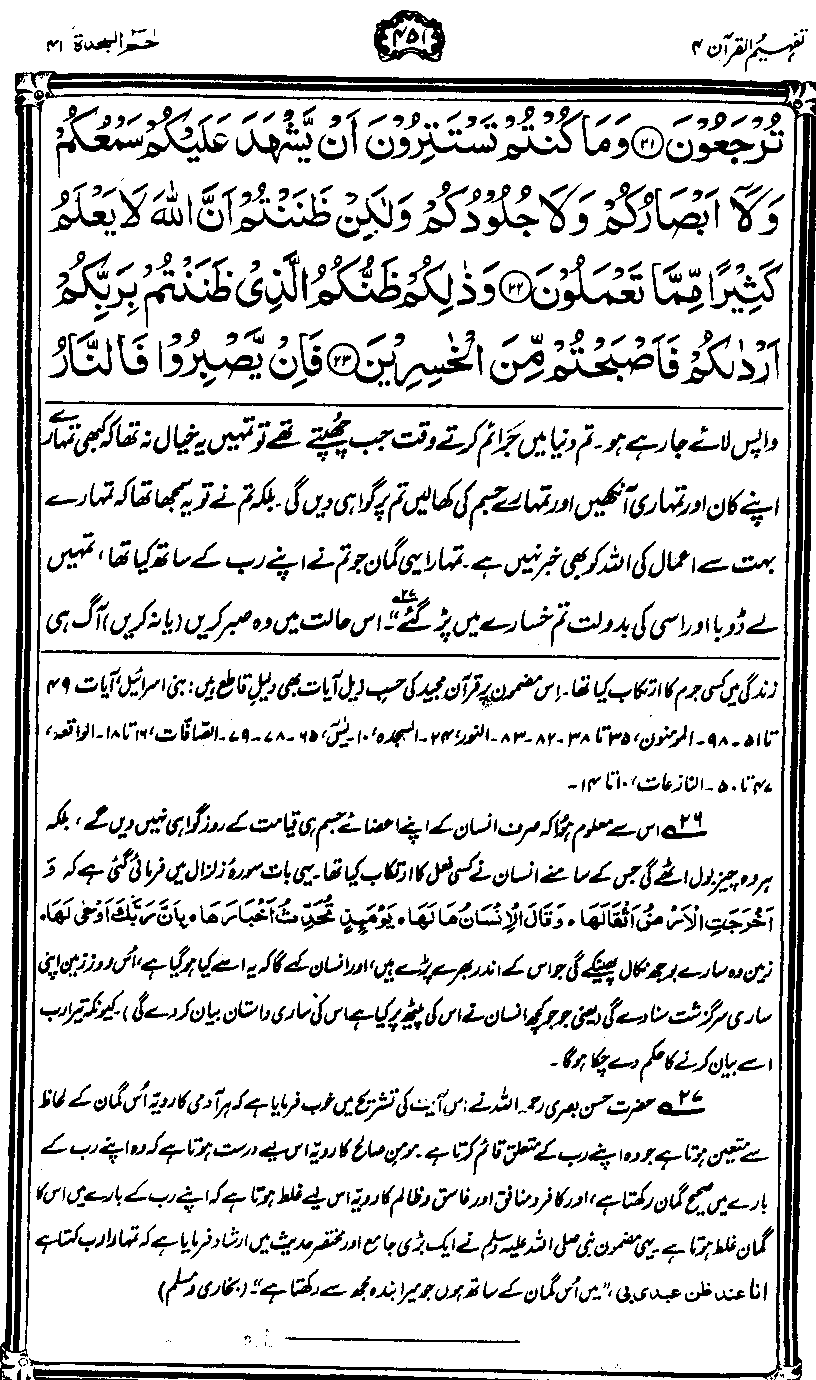 تفہیم القرآن ۴
۴۵۱
حٰمٓ السجدۃ ۴۱
تُرْجَعُوْنَ ﴿۲۱﴾ وَمَا كُنْتُمْ تَسْتَتِرُوْنَ اَنْ يَّشْهَدَ عَلَيْكُمْ سَمْعُكُمْ
وَلَآ اَبْصَارُكُمْ وَلَا جُلُوْدُكُمْ وَلٰكِنْ ظَنَنْتُمْ اَنَّ اللّٰهَ لَا يَعْلَمُ
كَثِيْرًا مِّمَّا تَعْمَلُوْنَ ﴿۲۲﴾ وَذٰلِكُمْ ظَنُّكُمُ الَّذِيْ ظَنَنْتُمْ بِرَبِّكُمْ
اَرْدٰىكُمْ فَاَصْبَحْتُمْ مِّنَ الْخٰسِرِيْنَ ﴿۲۳﴾ فَاِنْ يَّصْبِرُوْا فَالنَّارُ
واپس لائے جا رہے ہو۔ تم دنیا میں جرائم کرتے وقت جب چھپتے تھے تو تمہیں یہ خیال نہ تھا کہ کبھی تمہارے
اپنے کان اور تمہاری آنکھیں اور تمہارے جسم کی کھالیں تم پر گواہی دیں گی۔ بلکہ تم نے تو یہ سمجھا تھا کہ تمہارے
بہت سے اعمال کی اللہ کو بھی خبر نہیں ہے۔ تمہارا یہی گمان جو تم نے اپنے رب کے ساتھ کیا تھا، تمہیں
لے ڈوبا اور اسی کی بدولت تم خسارے میں پڑ گئے"۲۷۔ اس حالت میں وہ صبر کریں (یا نہ کریں) آگ ہی
زندگی میں کسی جرم کا ارتکاب کیا تھا۔ اِس مضمون پر قرآن مجید کی حسبِ ذیل آیات بھی دلیلِ قاطع ہیں: بنی اسرائیل، آیات ۴۹
تا ۵۱۔ ۹۸۔ المومنون، ۳۵ تا ۳۸۔ ۸۲۔ ۸۳۔ النور، ۲۴۔ السجدہ، ۱۰۔ یٰسٓ، ۶۵۔ ۷۸۔ ۷۹۔ الصّافّات، ۱۶ تا ۱۸۔ الواقعہ،
۴۷ تا ۵۰۔ النازعات، ۱۰ تا ۱۴۔
۲۶ اس سے معلوم ہوا کہ صرف انسان کے اپنے اعضائے جسم ہی قیامت کے روز گواہی نہیں دیں گے، بلکہ
ہر وہ چیز بول اٹھے گی جس کے سامنے انسان نے کسی فعل کا ارتکاب کیا تھا۔ یہی بات سورۂ زلزال میں فرمائی گئی ہے کہ وَ
اَخْرَجَتِ الْاَرْضُ اَثْقَالَهَا ٭ وَقَالَ الْاِنْسَانُ مَا لَهَا ٭ يَوْمَئِذٍ تُحَدِّثُ اَخْبَارَهَا ٭ بِاَنَّ رَبَّكَ اَوْحٰى لَهَا ٭
زمین وہ سارے بوجھ نکال پھینکے گی جو اس کے اندر بھرے پڑے ہیں، اور انسان کہے گا کہ یہ اسے کیا ہو گیا ہے، اُس روز زمین اپنی
ساری سرگزشت سنا دے گی (یعنی جو جو کچھ انسان نے اس کی پیٹھ پر کیا ہے اس کی ساری داستان بیان کر دے گی) کیونکہ تیرا رب
اسے بیان کرنے کا حکم دے چکا ہوگا۔
۲۷ حضرت حسن بصری رحمہ اللہ نے اس آیت کی تشریح میں خوب فرمایا ہے کہ ہر آدمی کا رویّہ اُس گمان کے لحاظ
سے متعین ہوتا ہے جو وہ اپنے رب کے متعلق قائم کرتا ہے۔ مومنِ صالح کا رویّہ اس لیے درست ہوتا ہے کہ وہ اپنے رب کے
بارے میں صحیح گمان رکھتا ہے، اور کافر و منافق اور فاسق و ظالم کا رویّہ اس لیے غلط ہوتا ہے کہ اپنے رب کے بارے میں اس کا
گمان غلط ہوتا ہے۔ یہی مضمون نبی صلی اللہ علیہ وسلم نے ایک بڑی جامع اور مختصر حدیث میں ارشاد فرمایا ہے کہ تمہارا رب کہتا ہے
انا عند ظن عبدی بی، "میں اُس گمان کے ساتھ ہوں جو میرا بندہ مجھ سے رکھتا ہے" (بخاری و مسلم)